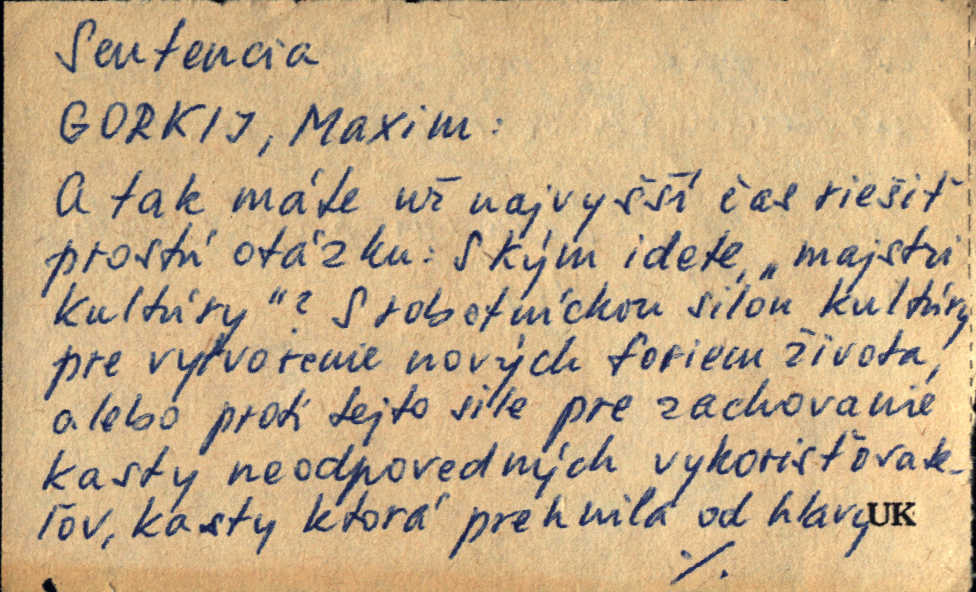 Sentencia
GORKIJ, Maxim:
A tak máte už najvyšší čas riešiť
prostú otázku: S kým idete, „majstri
kultúry“? S robotníckou silou kultúry
pre vytvorenie nových foriem života,
alebo proti tejto sile pre zachovanie
kasty neodpovedných vykorisťovate-
ľov, kasty ktorá prehnila od hlavy UK
./.